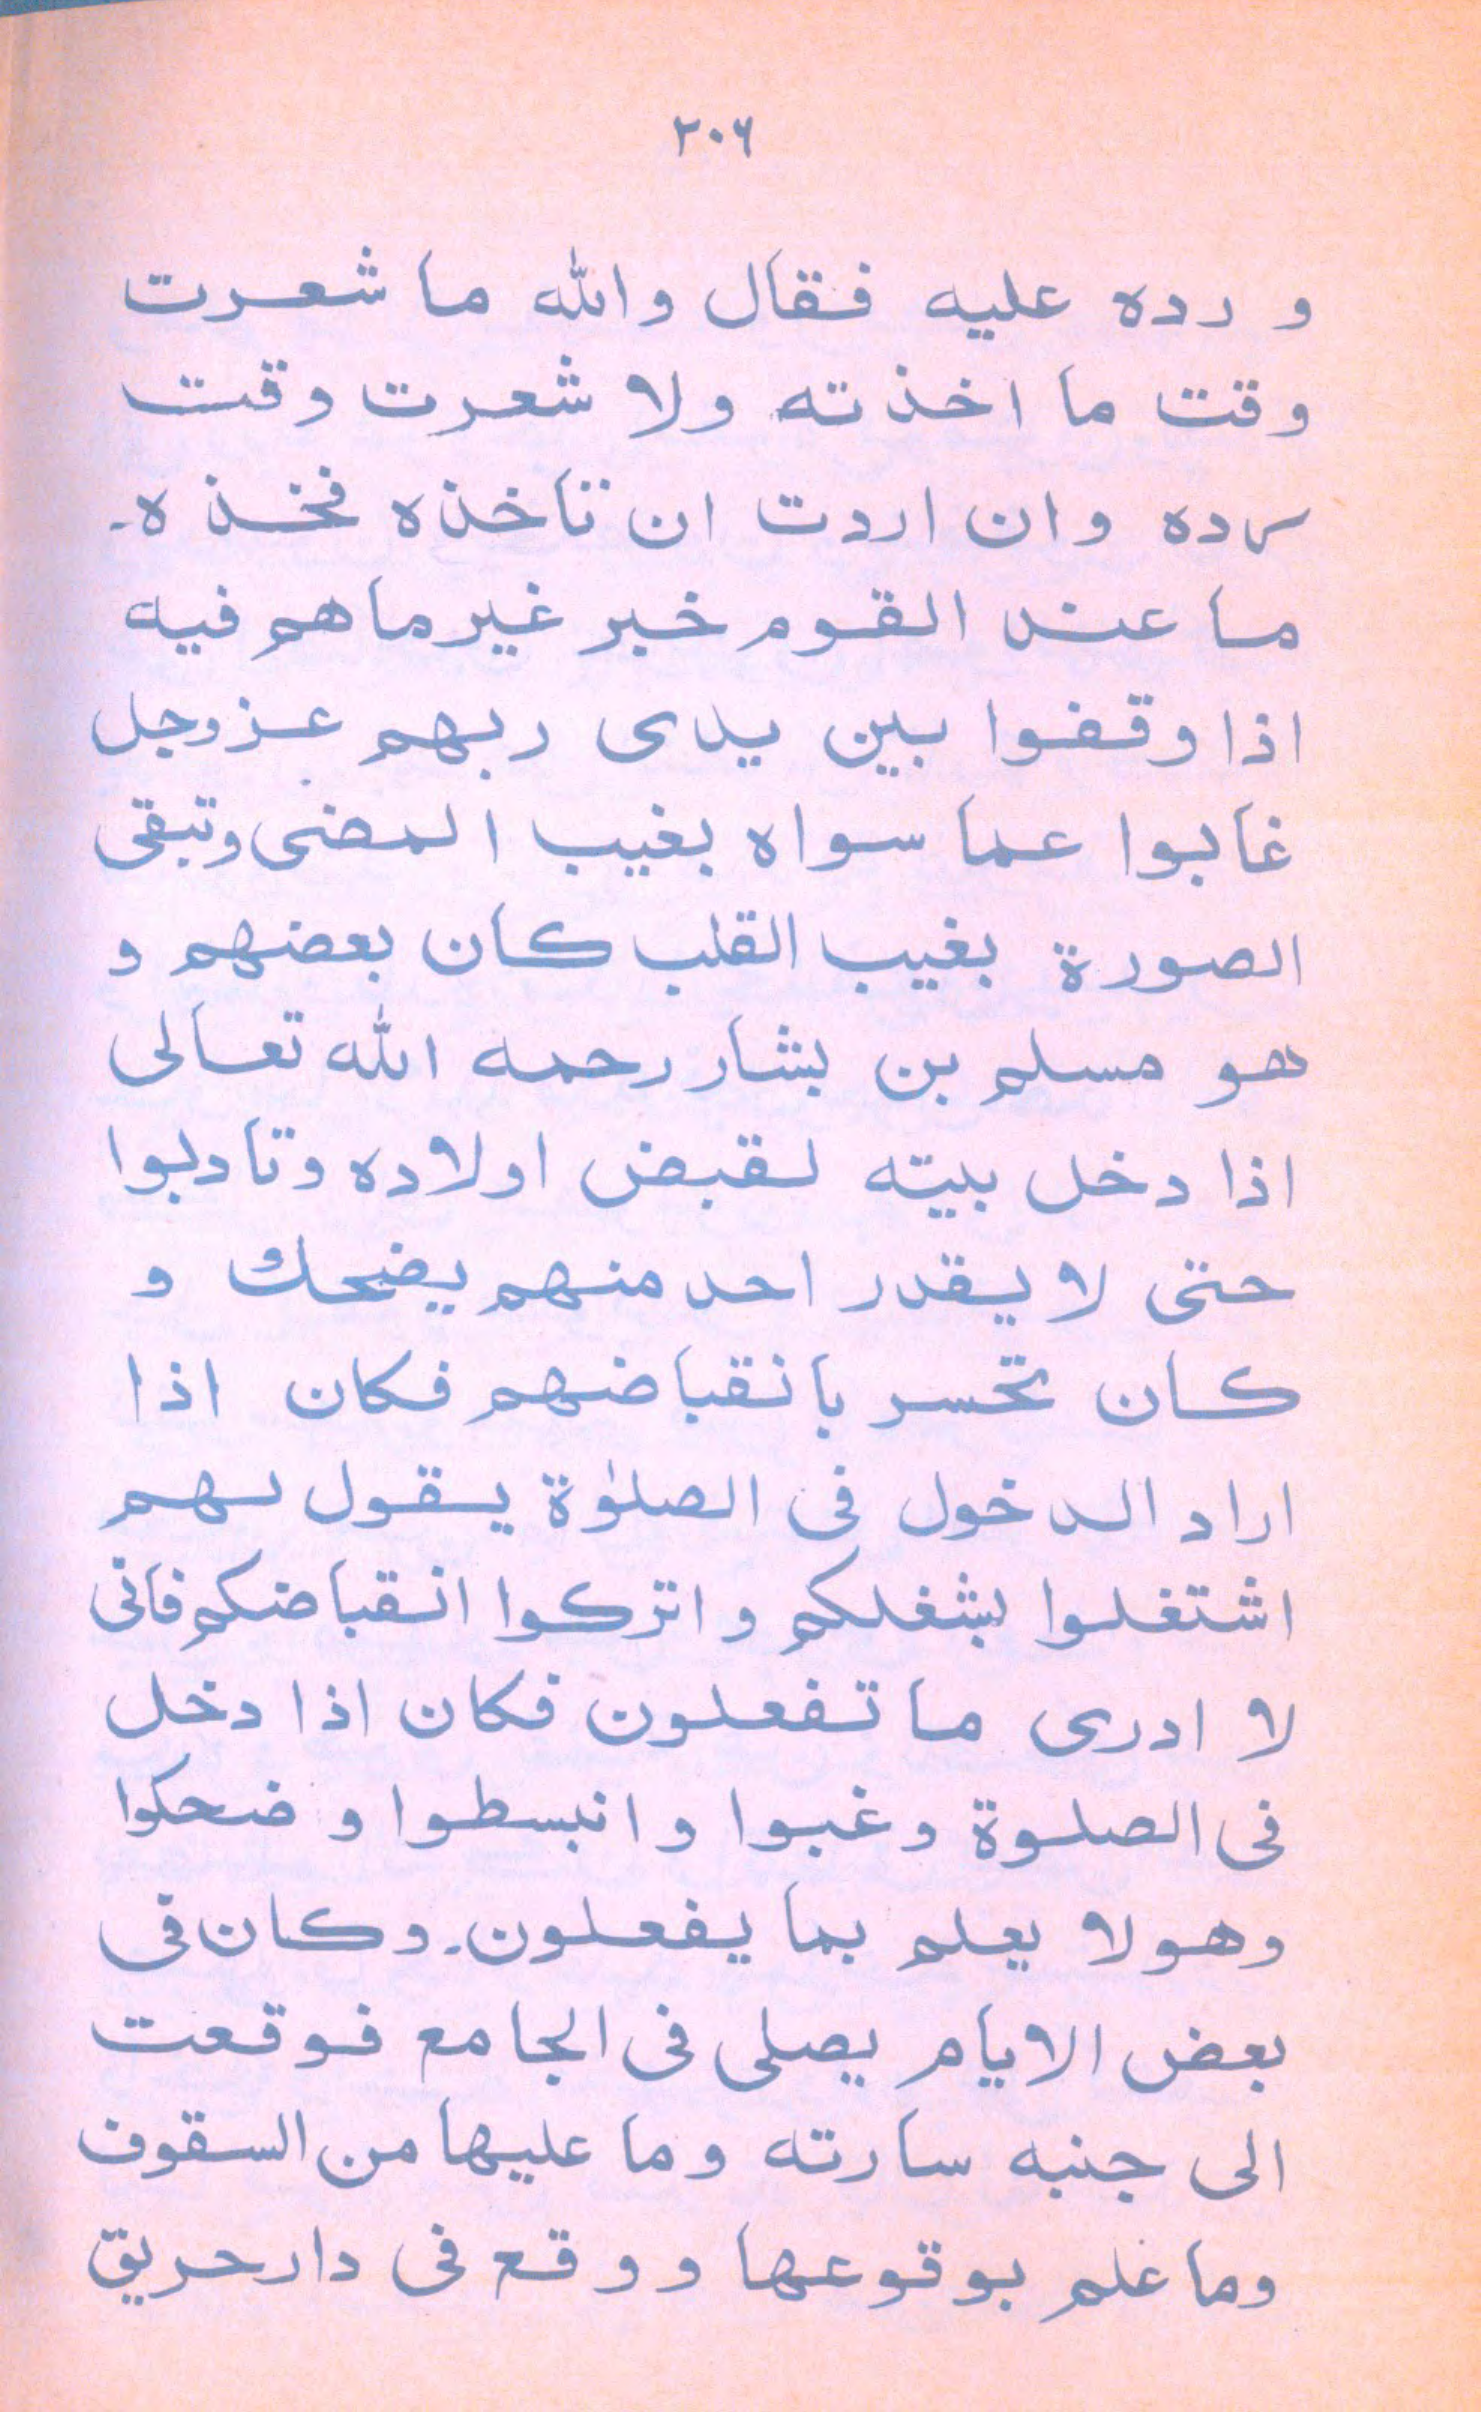 ۲۰۶
و رده عليه فقال والله ما شعرت
وقت ما اخذته ولا شعرت وقت
رده وان اردت ان تاخذه فخذه۔
ما عند القوم خبر غير ما هم فيه
اذا وقفوا بين يدى ربهم عزوجل
غابوا عما سواه بغيب المضى وتبقى
الصورة بغيب القلب كان بعضهم و
هو مسلم بن بشار رحمه الله تعالى
اذا دخل بيته لقبض اولاده وتادبوا
حتى لا يقدر احد منهم يضحك و
كان تخسر بانقباضهم فكان اذا
اراد الدخول فى الصلوٰة يقول لهم
اشتغلوا بشغلكم واتركوا انقباضكم فانى
لا ادرى ما تفعلون فكان اذا دخل
فى الصلوة وغبوا وانبسطوا وضحكوا
وهولا يعلم بما يفعلون۔ وكان فى
بعض الايام يصلى فى الجامع فوقعت
الى جنبه سارته وما عليها من السقوف
وما علم بوقوعها ووقع فى دار حريق